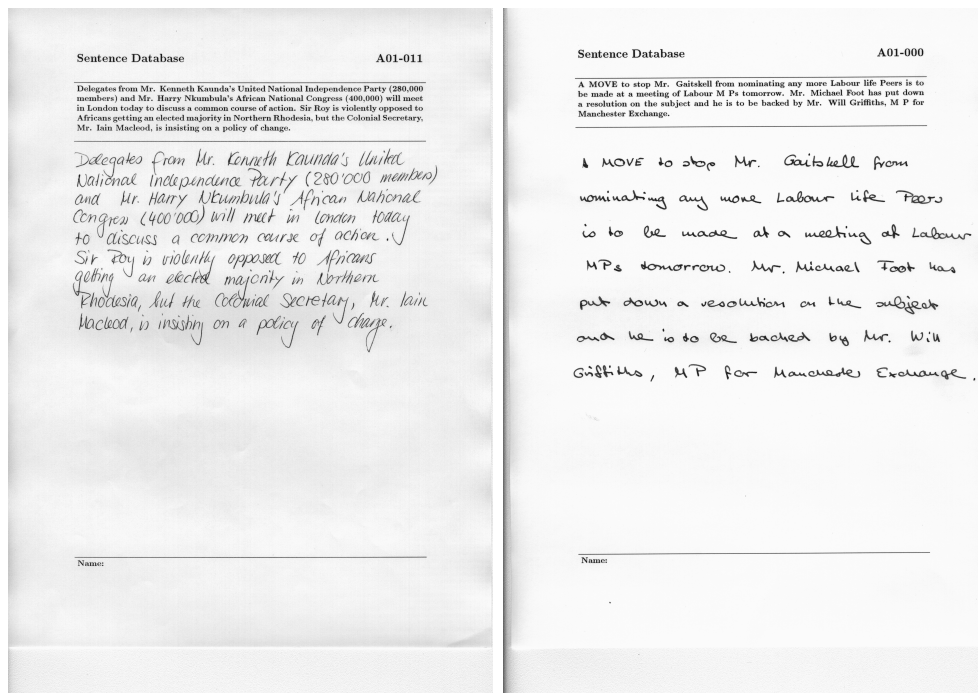 Sentence Database A01-011
Delegates from Mr. Kenneth Kaunda's United National Independence Party (280,000
members) and Mr. Harry Nkumbula's African National Congress (400,000) will meet
in London today to discuss a common course of action. Sir Roy is violently opposed to
Africans getting an elected majority in Northern Rhodesia, but the Colonial Secretary,
Mr. Iain Macleod, is insisting on a policy of change.
Delegates from Mr. Kenneth Kaunda's United
National Independence Party (280'000 members)
and Mr. Harry Nkumbula's African National
Congress (400'000) will meet in London today
to discuss a common course of action.
Sir Roy is violently opposed to Africans
getting an elected majority in Northern
Rhodesia, but the Colonial Secretary, Mr. Iain
Macleod, is insisting on a policy of change.
Name:
Sentence Database A01-000
A MOVE to stop Mr. Gaitskell from nominating any more Labour life Peers is to
be made at a meeting of Labour M Ps tomorrow. Mr. Michael Foot has put down
a resolution on the subject and he is to be backed by Mr. Will Griffiths, M P for
Manchester Exchange.
A MOVE to stop Mr. Gaitskell from
nominating any more Labour life Peers
is to be made at a meeting of Labour
MPs tomorrow. Mr. Michael Foot has
put down a resolution on the subject
and he is to be backed by Mr. Will
Griffiths, MP for Manchester Exchange.
Name: